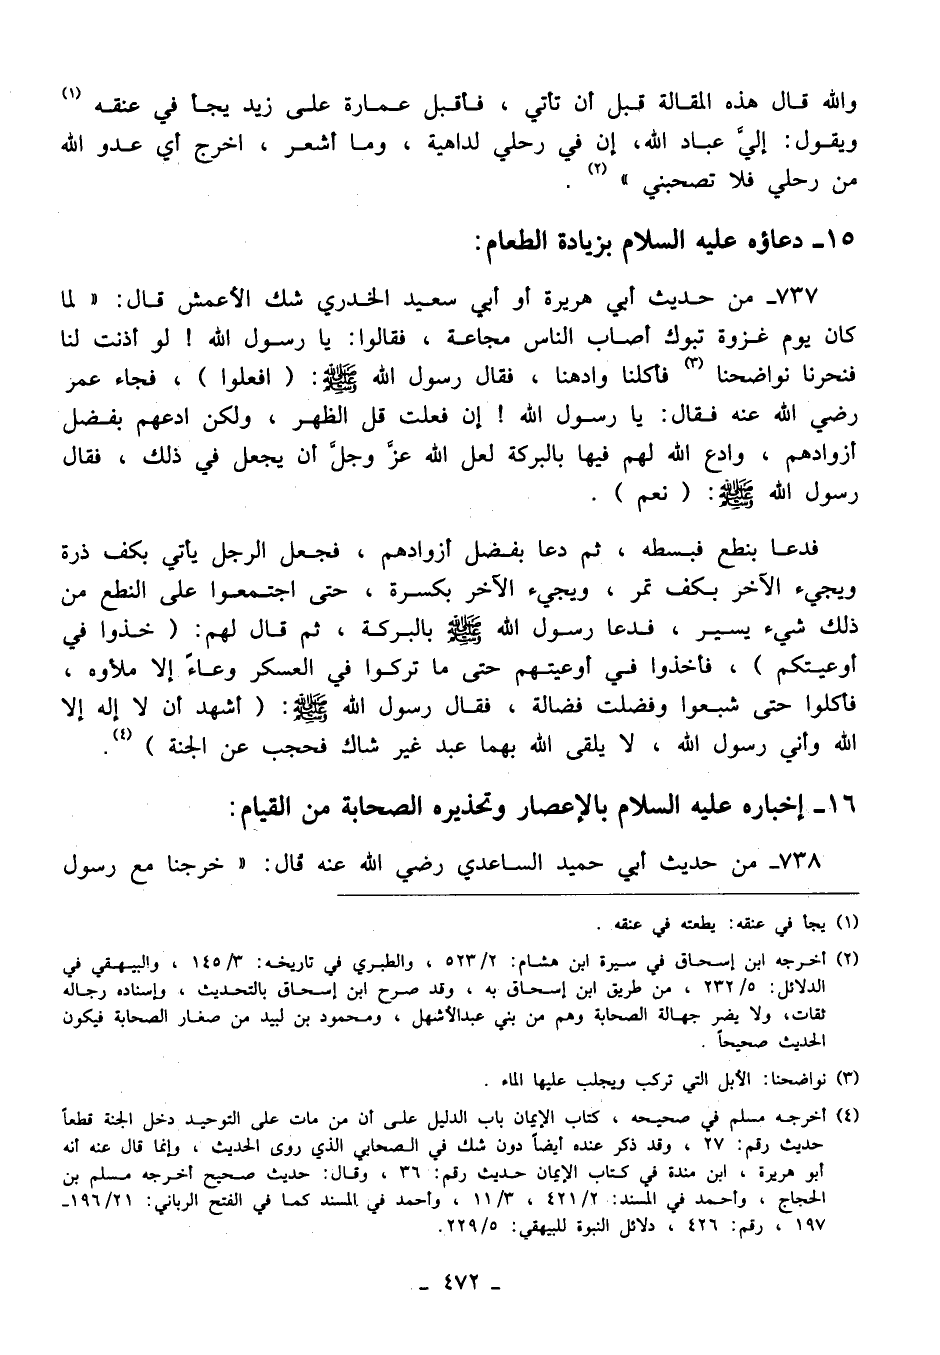 والله قال هذه المقالة قبل أن تأتي ، فأقبل عمارة على زيد يجأ في عنقه (١)
ويقول: إليَّ عباد الله، إن في رحلي لداهية ، وما أشعر ، اخرج أي عدو الله
من رحلي فلا تصحبني » (٢) .
١٥ـ دعاؤه عليه السلام بزيادة الطعام:
٧٣٧ـ من حديث أبي هريرة أو أبي سعيد الخدري شك الأعمش قال: « لما
كان يوم غزوة تبوك أصاب الناس مجاعة ، فقالوا: يا رسول الله ! لو أذنت لنا
فنحرنا نواضحنا (٣) فأكلنا وادهنا ، فقال رسول الله ﷺ: ( افعلوا ) ، فجاء عمر
رضي الله عنه فقال: يا رسول الله ! إن فعلت قل الظهر ، ولكن ادعهم بفضل
أزوادهم ، وادع الله لهم فيها بالبركة لعل الله عزَّ وجلَّ أن يجعل في ذلك ، فقال
رسول الله ﷺ: ( نعم ) .
فدعا بنطع فبسطه ، ثم دعا بفضل أزوادهم ، فجعل الرجل يأتي بكف ذرة
ويجيء الآخر بكف تمر ، ويجيء الآخر بكسرة ، حتى اجتمعوا على النطع من
ذلك شيء يسير ، فدعا رسول الله ﷺ بالبركة ، ثم قال لهم: ( خذوا في
أوعيتكم ) ، فأخذوا في أوعيتهم حتى ما تركوا في العسكر وعاءً إلا ملأوه ،
فأكلوا حتى شبعوا وفضلت فضالة ، فقال رسول الله ﷺ: ( أشهد أن لا إله إلا
الله وأني رسول الله ، لا يلقى الله بهما عبد غير شاك فحجب عن الجنة ) (٤) .
١٦ـ إخباره عليه السلام بالإعصار وتحذيره الصحابة من القيام:
٧٣٨ـ من حديث أبي حميد الساعدي رضي الله عنه قال: « خرجنا مع رسول
(١) يجأ في عنقه: يطعته في عنقه .
(٢) أخرجه ابن إسحاق في سيرة ابن هشام: ٥٢٣/٢ ، والطبري في تاريخه: ١٤٥/٣ ، والبيهقي في
الدلائل: ٢٣٢/٥ ، من طريق ابن إسحاق به ، وقد صرح ابن إسحاق بالتحديث ، وإسناده رجاله
ثقات، ولا يضر جهالة الصحابة وهم من بني عبدالأشهل ، ومحمود بن لبيد من صغار الصحابة فيكون
الحديث صحيحاً .
(٣) نواضحنا: الأبل التي تركب ويجلب عليها الماء .
(٤) أخرجه مسلم في صحيحه ، كتاب الإيمان باب الدليل على أن من مات على التوحيد دخل الجنة قطعاً
حديث رقم: ٢٧ ، وقد ذكر عنده أيضاً دون شك في الصحابي الذي روى الحديث ، وإنما قال عنه أنه
أبو هريرة ، ابن مندة في كتاب الإيمان حديث رقم: ٣٦ ، وقال: حديث صحيح أخرجه مسلم بن
الحجاج ، وأحمد في المسند: ٤٢١/٢ ، ١١/٣ ، وأحمد في المسند كما في الفتح الرباني: ١٩٦/٢١ـ
١٩٧ ، رقم: ٤٢٦ ، دلائل النبوة للبيهقي: ٢٢٩/٥.
ـ ٤٧٢ ـ